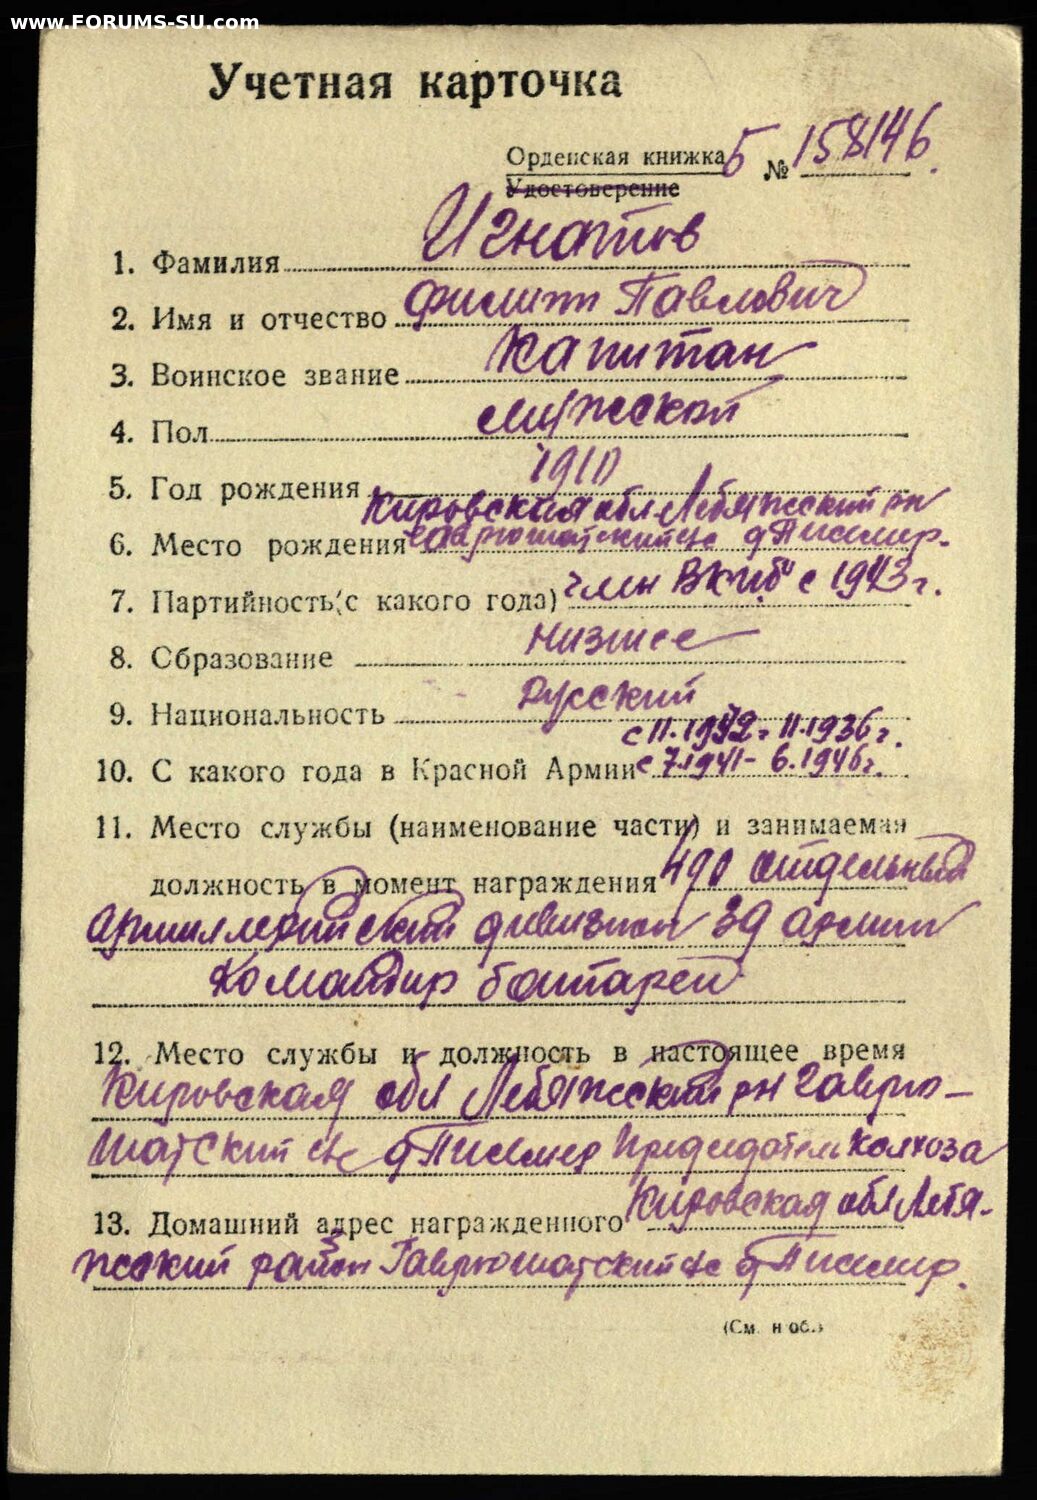 www.FORUMS-SU.com
Учетная карточка
Орденская книжка Б № 158146.
Удостоверение
1. Фамилия Игнатов
2. Имя и отчество Филипп Павлович
3. Воинское звание Капитан
4. Пол мужской
5. Год рождения 1910
Кировская обл Лебяжский рн
6. Место рождения д
7. Партийность (с какого года) член ВКП(б) с 1943 г.
8. Образование низшее
9. Национальность Русский
10. С какого года в Красной Армии с 7.1941 - 6.1946 г.
11. Место службы (наименование части) и занимаемая
должность в момент награждения 490 отдельный
артиллерийский дивизион 39 армии
командир батареи
12. Место службы и должность в настоящее время
Кировская обл Лебяжский рн Гаврю-
шатский с/с д председатель колхоза
13. Домашний адрес награжденного Кировская обл Лебя-
жский район Гаврюшатский с/с д
(См. н об.)